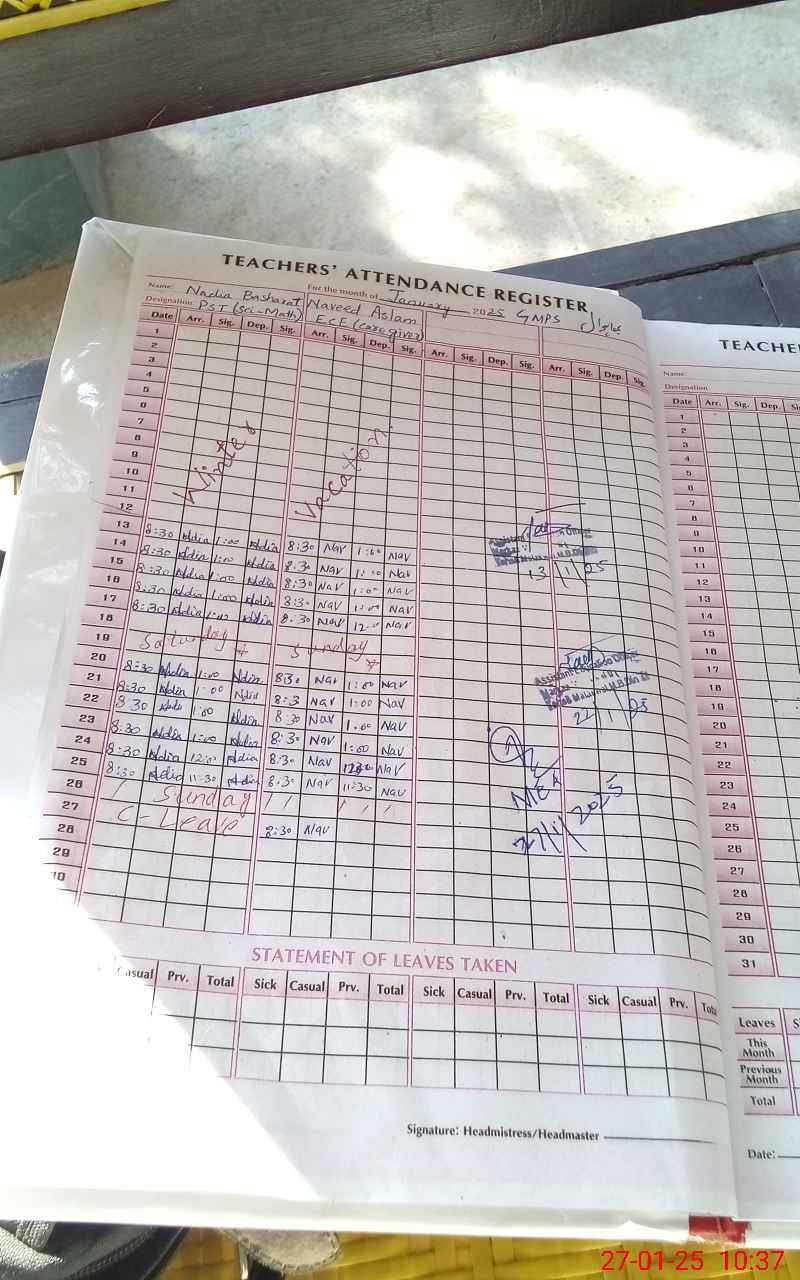 TEACHERS' ATTENDANCE REGISTER
Name: Nadia Basharat Naveed Aslam For the month of January 2025 GMPS
Designation: PST (Sci-Math) ECE (caregiver)
Date Arr. Sig. Dep. Sig. Arr. Sig. Dep. Sig. Arr. Sig. Dep. Sig. Arr. Sig. Dep. Sig.
1
2
3
4
5
6
7
8
9
10
11
12
Winter Vacation
13 8:30 Adia 1:00 Adia 8:30 Nav 1:00 Nav
14 8:30 Adia 1:00 Adia 8:30 Nav 1:00 Nav
15 8:30 Adia 1:00 Adia 8:30 Nav 1:00 Nav
16 8:30 Adia 1:00 Adia 8:30 Nav 1:00 Nav
17 8:30 Adia 1:00 Adia 8:30 Nav 12:00 Nav
18
19 Sunday
20 8:30 Adia 1:00 Adia 8:30 Nav 1:00 Nav
21 8:30 Adia 1:00 Adia 8:30 Nav 1:00 Nav
22 8:30 1:00 Adia 8:30 Nav 1:00 Nav
23 8:30 Adia 1:00 Adia 8:30 Nav 1:00 Nav
24 8:30 Adia 12:00 Adia 8:30 Nav Nav
25 8:30 Adia 11:30 Adia 8:30 Nav 11:30 Nav
26 Sunday
27 C-Leave 8:30 Nav
28
29
Assistant
13/1/25
Assistant
22/1/25
MEA
27/1/2025
STATEMENT OF LEAVES TAKEN
Casual Prv. Total Sick Casual Prv. Total Sick Casual Prv. Total Sick Casual Prv. Total
Signature: Headmistress/Headmaster
TEACHE
Name:
Designation
Date Arr. Sig. Dep. Sig.
1
2
3
4
5
6
7
8
9
10
11
12
13
14
15
16
17
18
19
20
21
22
23
24
25
26
27
28
29
30
31
Leaves
This Month
Previous Month
Total
Date:
27-01-25 10:37